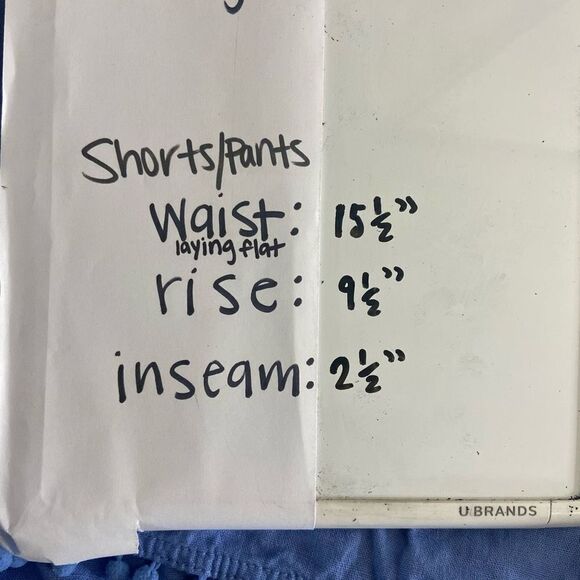 Shorts/Pants
Waist: 15 1/2"
laying flat
rise: 9 1/2"
inseam: 2 1/2"
U BRANDS